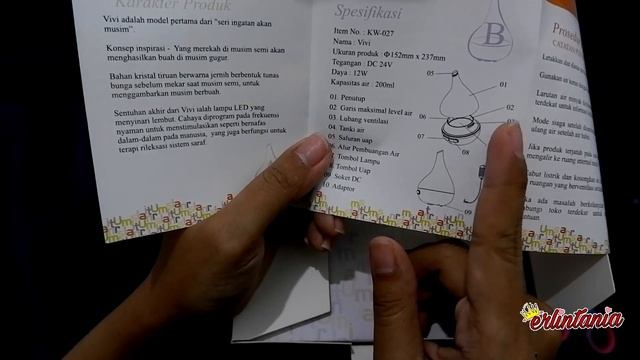 Karakter Produk
Vivi adalah model pertama dari "seri ingatan akan
musim".
Konsep inspirasi - Yang merekah di musim semi akan
menghasilkan buah di musim gugur.
Bahan kristal tiruan berwarna jernih berbentuk tunas
bunga sebelum mekar saat musim semi, untuk
menggambarkan musim berbuah.
Sentuhan akhir dari Vivi ialah lampu LED yang
menyinari lembut. Cahaya diprogram pada frekuensi
nyaman untuk menstimulasikan seperti bernafas
dalam-dalam pada manusia, yang juga berfungsi untuk
terapi rileksasi sistem saraf.
Spesifikasi
Item No. : KW-027
Nama : Vivi
Ukuran produk : Φ152mm x 237mm
Tegangan : DC 24V
Daya : 12W
Kapasitas air : 200ml
01 Penutup
02 Garis maksimal level air
03 Lubang ventilasi
04 Tanki air
05 Saluran uap
06 Alur Pembuangan Air
07 Tombol Lampu
08 Tombol Uap
09 Soket DC
10 Adaptor
B
05
01
02
06
07
08
09
Letakkan dan
Gunakan air
Larutan air
terdekat untuk
Mode siaga setelah
ulang air setelah air
Jika produk terjatuh
mengalir ke ruang
listrik dan kosongkan
ruangan yang berventilasi
ada masalah
toko terdekat untuk
erlintania